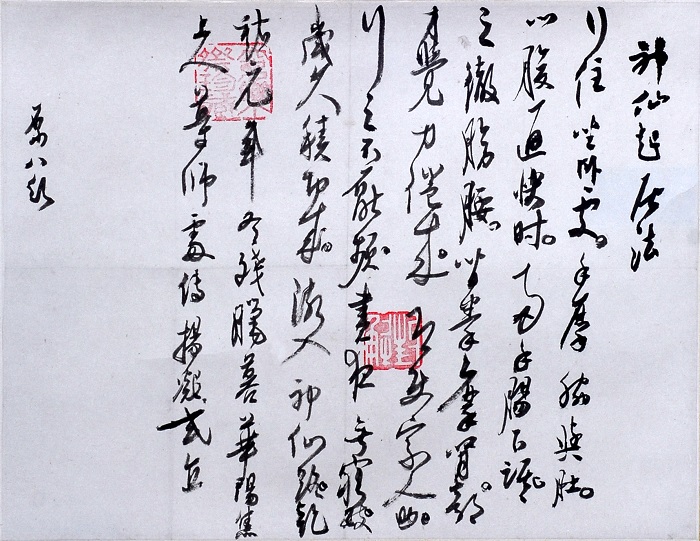 神仙起居法
行住坐卧處手摩脅與肚
心腹通快時兩手腸下踞
之徹膀腰背拳摩腎部
才覺力倦來即使家人助
行之不厭頻晝夜無窮數
歲久積功成漸入神仙路乾
祐元年冬殘臘暮華陽焦
上人尊師處傳楊凝式